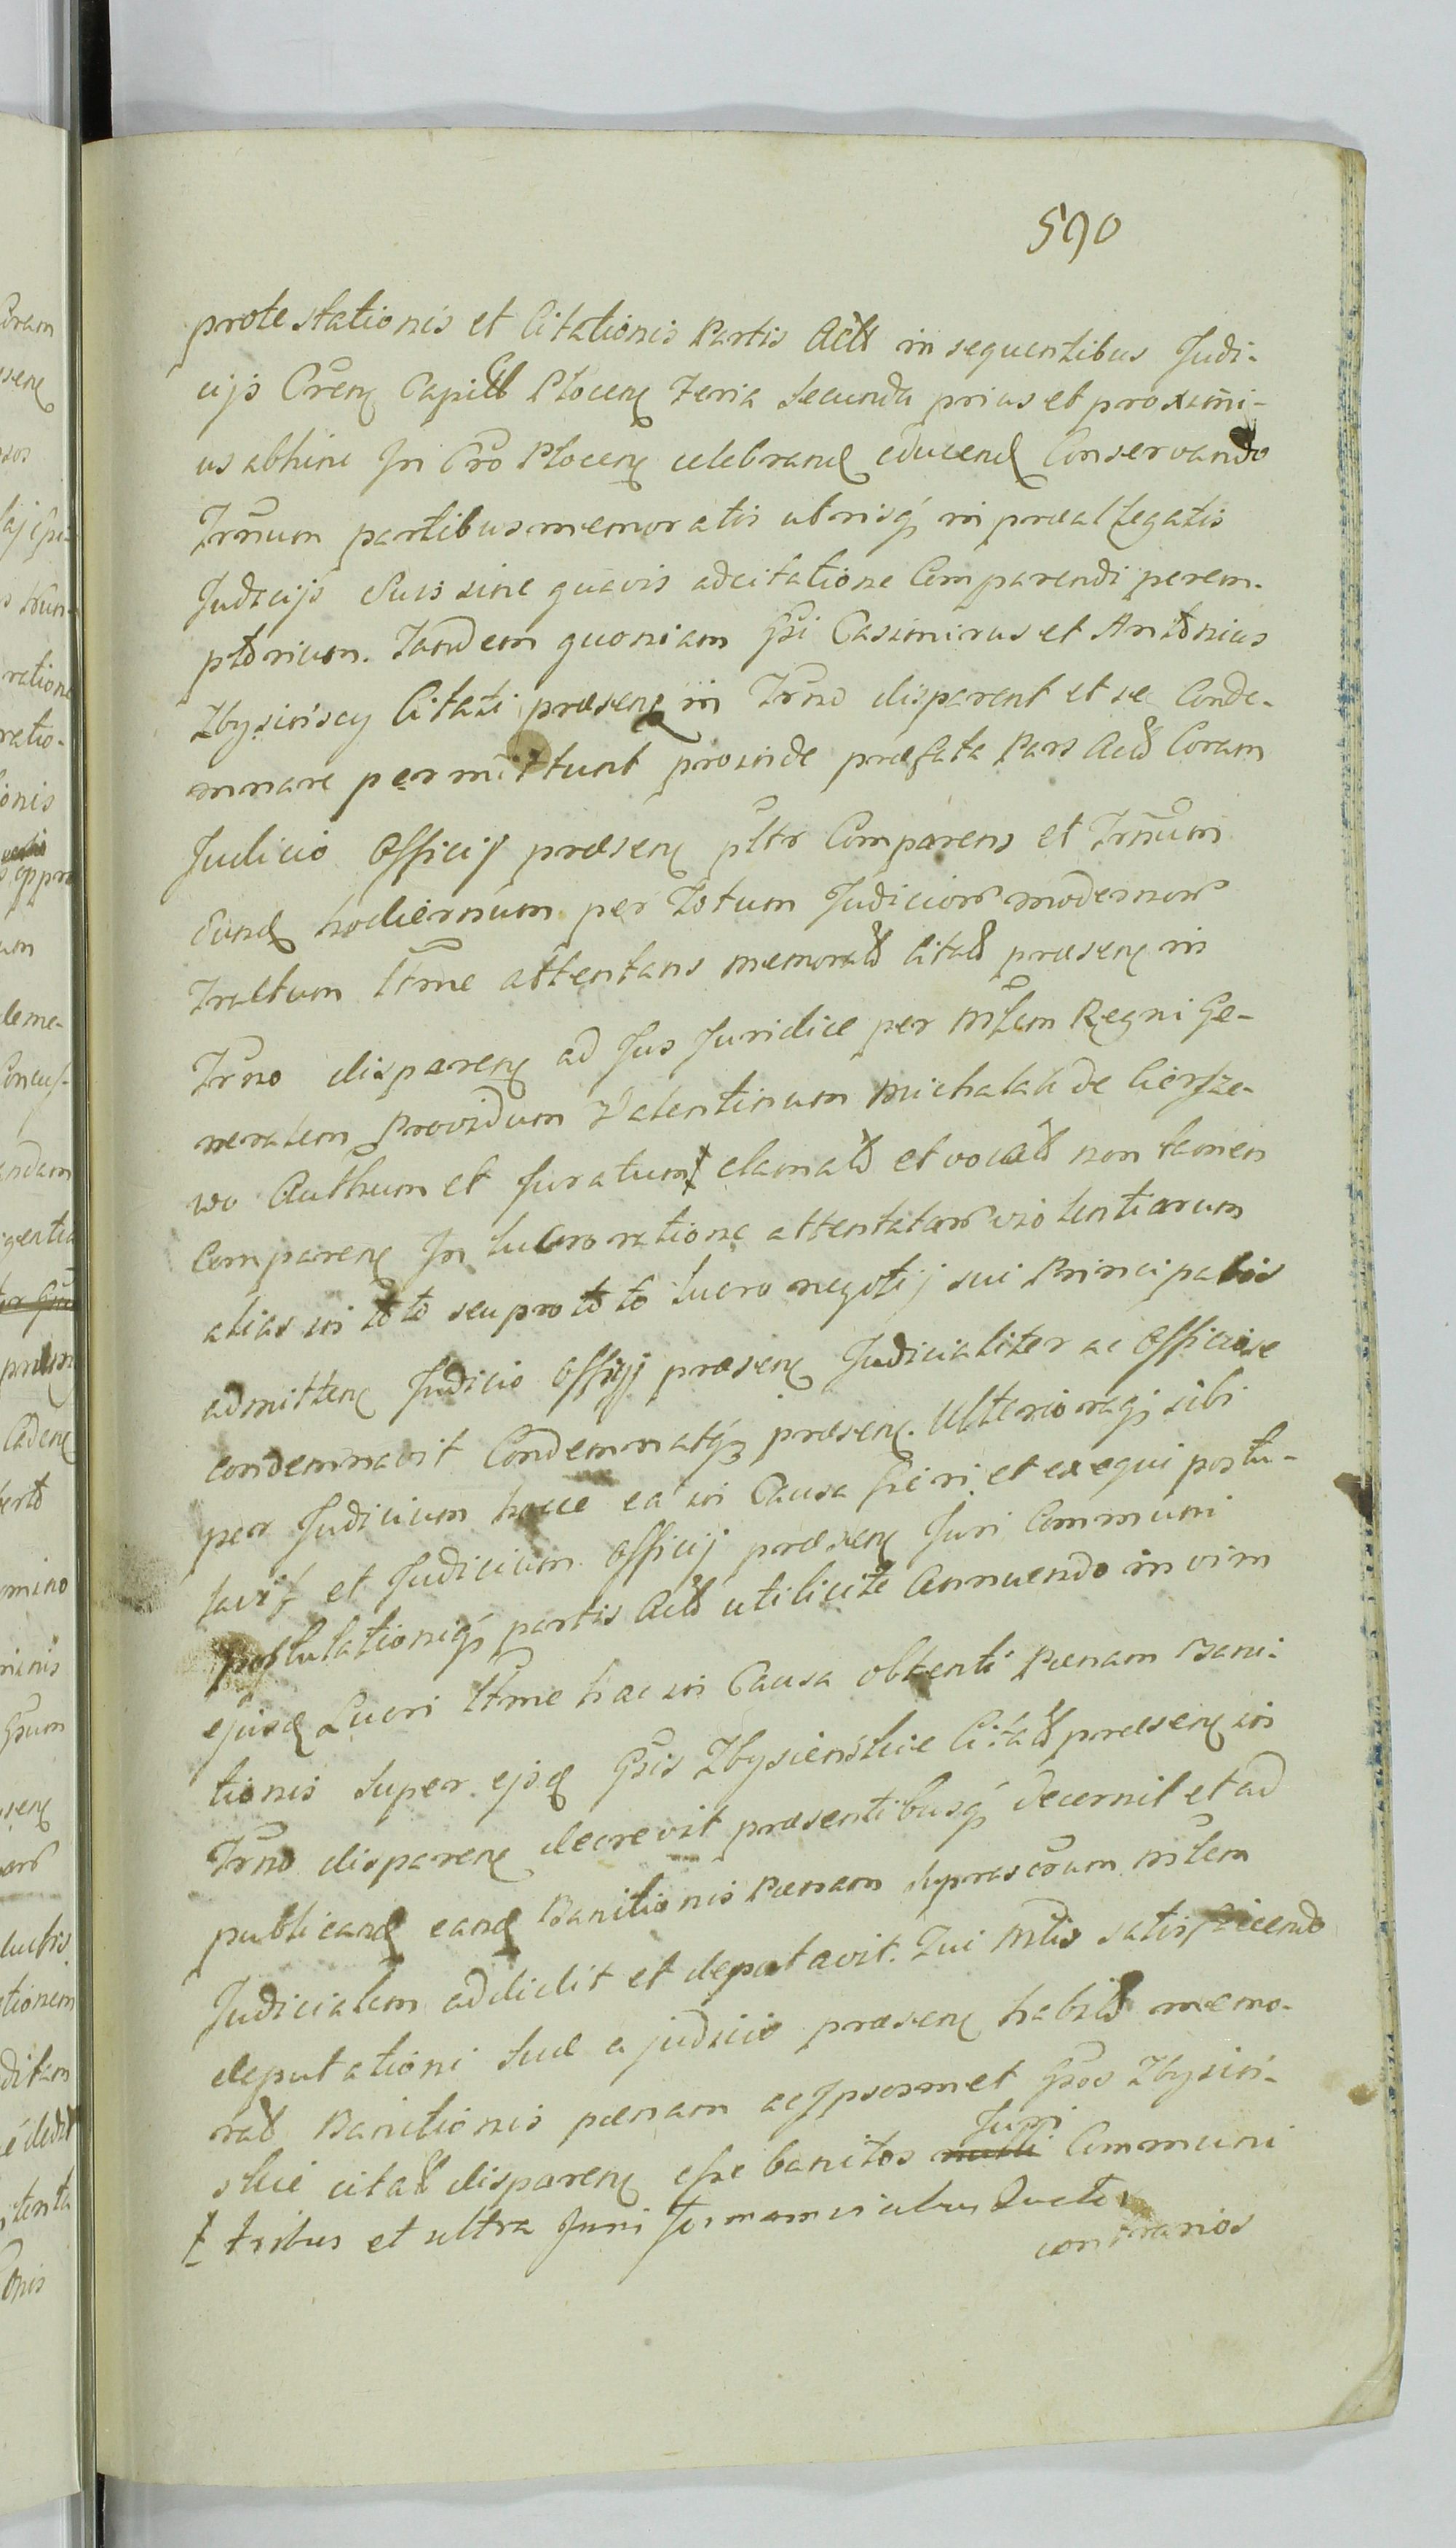 590
protestationis et Citationis Partis Actt in sequentibus Judi-
cijs Crens Capitt Plocens Feria Secunda prius et proximi-
us abhinc In Cro Plocens celebrand educend Conservando
Trnum partibus memoratis utrisq in praeallegatis
Judicijs Suis sine quavis adcitatione Comparendi perem-
ptorium. Tandem quoniam Gsi Casimirus et Antonius
Zbysinscy Citati praesens in Trno disparent et se Conde-
mnare permittunt proinde praefata Pars Actt Coram
Judicio Officij praesens pltr Comparens et Trnum
Eund hodiernum per Totum Judicior modernor
Tractum ltme attentans memoratt Citatt praesens in
Trno disparens ad Jus Juridice per Mlem Regni Ge-
neralem Providum Valentinum Michalak de Ciersze-
wo Authum et Juratum clamatt et vocatt non tamen
Comparens In lucro ratione attentatar violentiarum
alias in toto seu pro toto lucro negotij sui Principalis
admittens Judicio Officij praesens Judicialiter ac Officiose
condemnavit Condemnatq praesens. Ulterioraq sibi
per Judicium hocce ea in Causa fieri et exequi postu-
lavit et Judicium Officij praesens Juri Communi
postulationiq partis Actt utilicite Annuendo in vim
ejusd Lucri ltme hac in Causa obtenti Paenam Bani-
tionis super ejsd Gsis Zbysienskie Citatt praesens in
Trno disparens decrevit praesentibusq decernit et ad
publicand eand Banitionis Paenam suprascrum Mlem
Judicialem addidit et deputavit. Qui Mlis satisfaciendo
deputationi suae a judicio praesens habitt memo-
ratt Banitionis paenam ac Ipsosmet Gsos Zbysin-
skie citatt disparens esse banitos Juri Communi
tribus et ultra Juri formam vicibus
contrarios